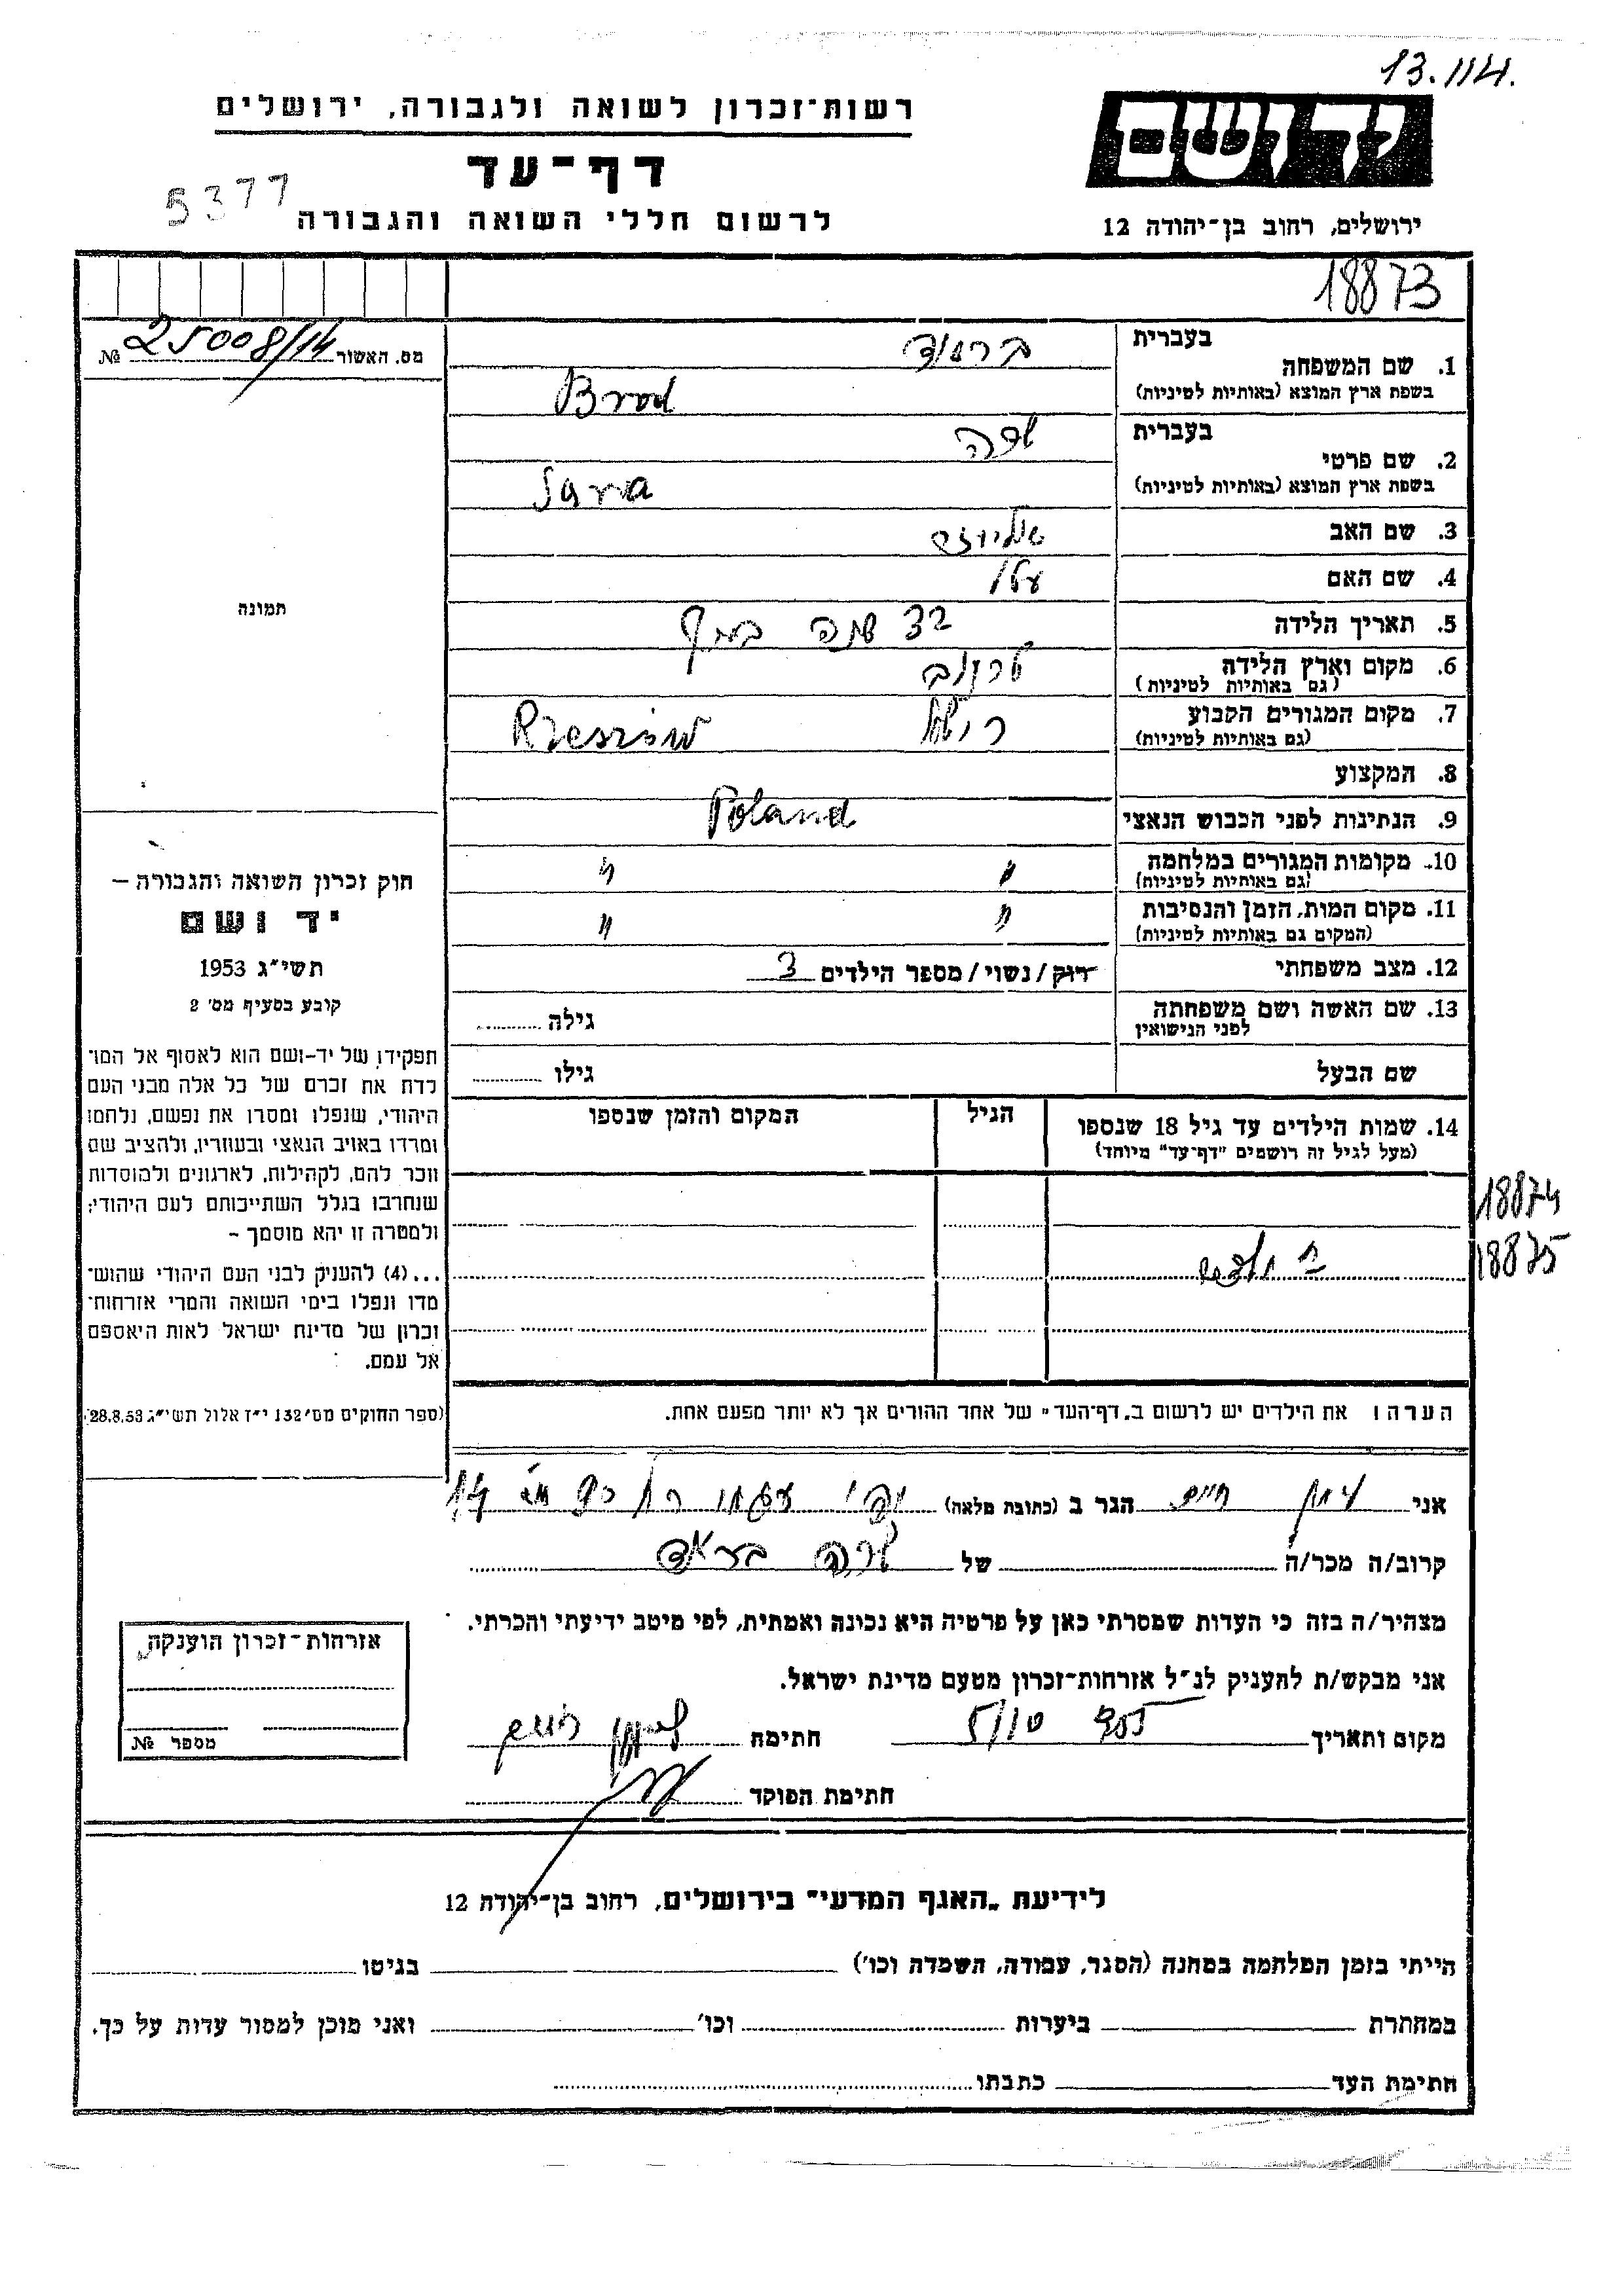 13.114.
רשות־זכרון לשואה ולגבורה, ירושלים
יד ושם
דף־עד
5377
לרשום חללי השואה והגבורה
ירושלים, רחוב בן־יהודה 12
18873
מס. האשור 25008/14 №
בעברית ברואד
1. שם המשפחה
בשפת ארץ המוצא (באותיות לטיניות) Brod
בעברית שרה
2. שם פרטי
בשפת ארץ המוצא (באותיות לטיניות) Sara
3. שם האב
4. שם האם
תמונה
5. תאריך הלידה שנה בערך
6. מקום וארץ הלידה
(גם באותיות לטיניות)
7. מקום המגורים הקבוע Rzeszów
(גם באותיות לטיניות)
8. המקצוע
9. הנתינות לפני הכבוש הנאצי Poland
10. מקומות המגורים במלחמה " "
(גם באותיות לטיניות)
11. מקום המות, הזמן והנסיבות " "
(המקום גם באותיות לטיניות)
12. מצב משפחתי רוק/נשוי/מספר הילדים 3
13. שם האשה ושם משפחתה גילה
לפני הנישואין
שם הבעל גילו
14. שמות הילדים עד גיל 18 שנספו הגיל המקום והזמן שנספו
(מעל לגיל זה רושמים "דף־עד" מיוחד)
18874
18875
הערה: את הילדים יש לרשום ב„דף־העד" של אחד ההורים אך לא יותר מפעם אחת.
חוק זכרון השואה והגבורה –
יד ושם
תשי"ג 1953
קובע בסעיף מס' 2
תפקידו של יד-ושם הוא לאסוף אל המו־
לדת את זכרם של כל אלה מבני העם
היהודי, שנפלו ומסרו את נפשם, נלחמו
ומרדו באויב הנאצי ובעוזריו, ולהציב שם
וזכר להם, לקהילות, לארגונים ולמוסדות
שנחרבו בגלל השתייכותם לעם היהודי;
ולמטרה זו יהא מוסמך –
...(4) להעניק לבני העם היהודי שהוש־
מדו ונפלו בימי השואה והמרי אזרחות־
זכרון של מדינת ישראל לאות היאספם
אל עמם.
(ספר החוקים מס' 132 י"ז אלול תשי"ג 28.8.53)
אני חיים הגר ב (כתובת מלאה) 14
קרוב/ה מכר/ה של שרה בראד
מצהיר/ה בזה כי העדות שמסרתי כאן על פרטיה היא נכונה ואמתית, לפי מיטב ידיעתי והכרתי.
אני מבקש/ת להעניק לנ"ל אזרחות־זכרון מטעם מדינת ישראל.
מקום ותאריך חתימה
חתימת הפוקד
אזרחות־זכרון הוענקה
מספר №
לידיעת „האגף המדעי" בירושלים, רחוב בן־יהודה 12
הייתי בזמן המלחמה במחנה (הסגר, עבודה, השמדה וכו') בגיטו
במחתרת ביערות וכו' ואני מוכן למסור עדות על כך.
חתימת העד כתבתו